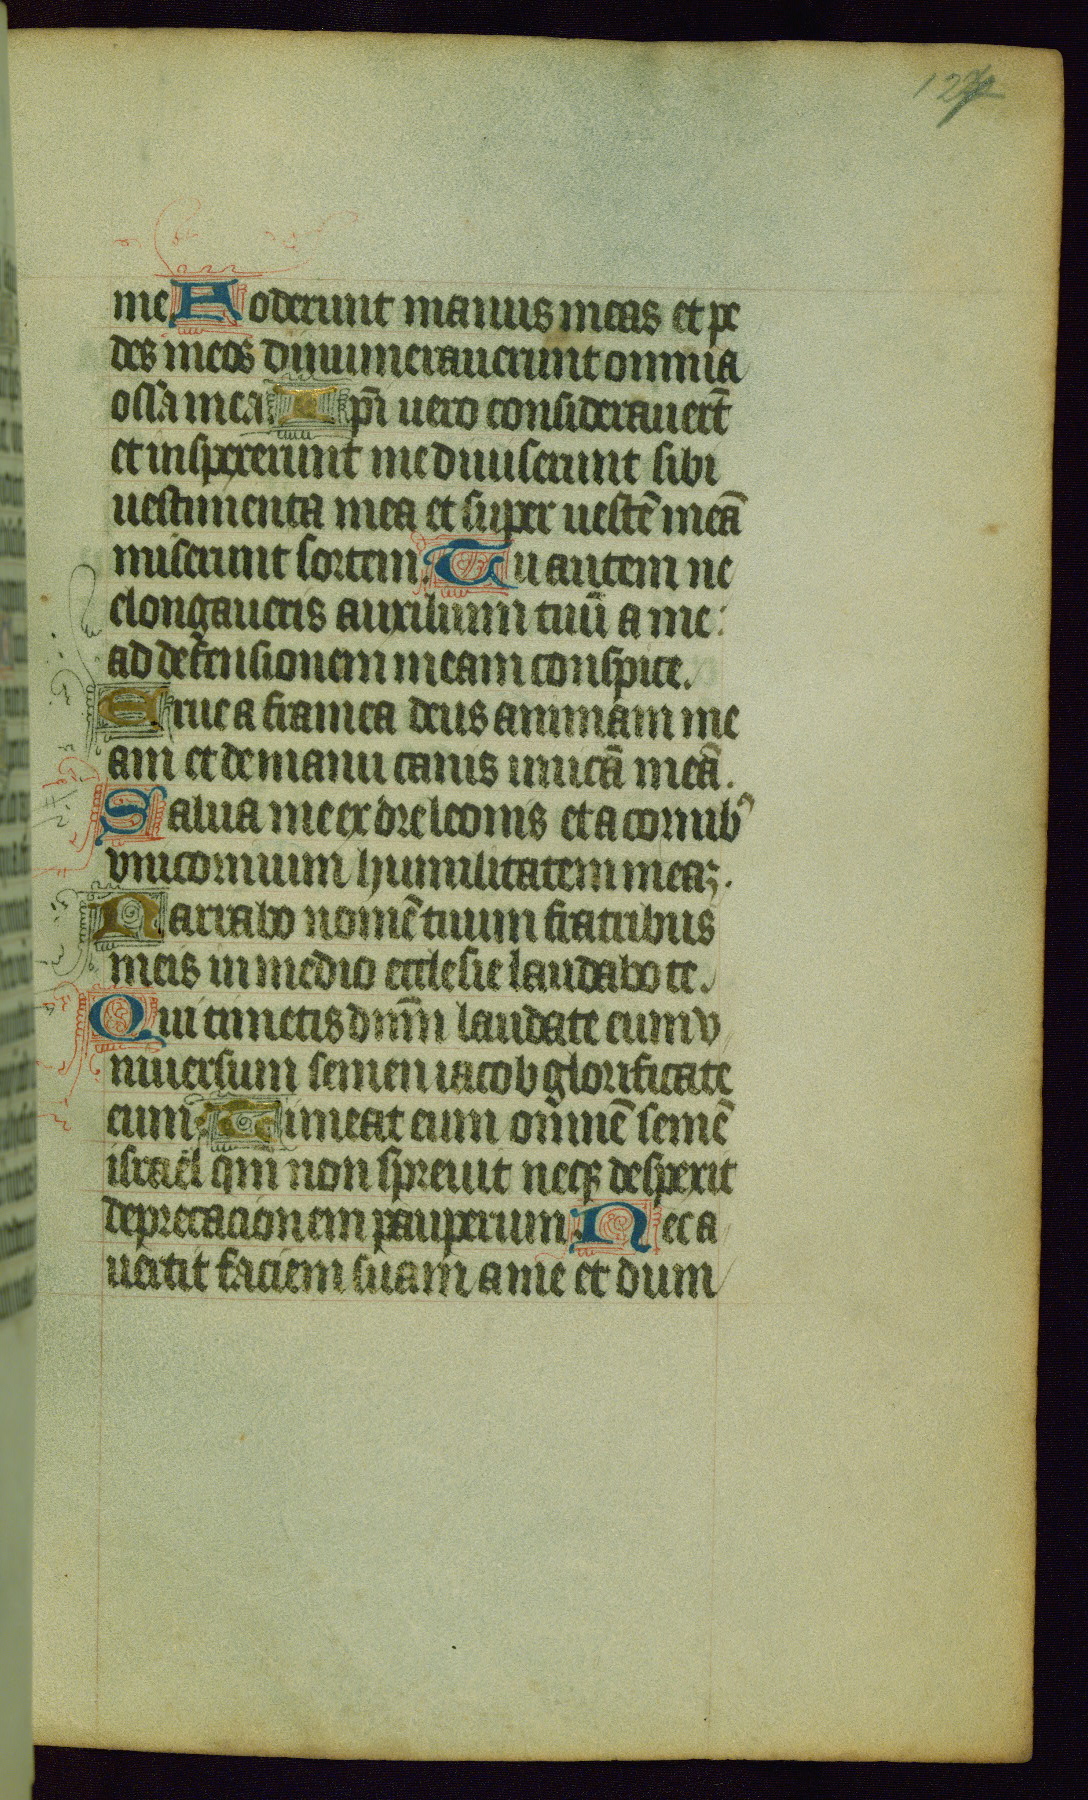 127
me Foderunt manus meas et pe
des meos dinumerauerunt omnia
ossa mea Ip̄i uero considerauer̄t
et inspexerunt me diuiserunt sibi
uestimenta mea et super uestē meā
miserunt sortem. Tu autem ne
elongaueris auxilium tuū a me:
ad defensionem meam conspice.
Erue a framea deus animam me
am et de manu canis unicā meā.
Salua me ex ore leonis et a cornibꝰ
vnicornium humilitatem meaꝫ.
Narrabo nomē tuum fratribus
meis in medio ecclesie laudabo te.
Qui timetis dnm̄ laudate eum v
niuersum semen iacob glorificate
eum Timeat eum om̄ne semē
israel qm̄ non spreuit neqꝫ despexit
deprecacionem pauperum. Nec a
uertit faciem suam a me et dum